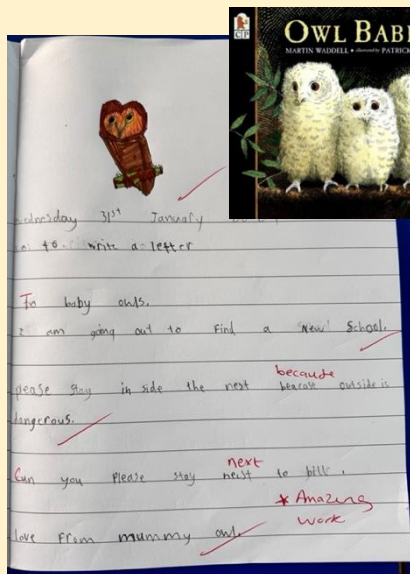 OWL BAB
MARTIN WADDELL • illustrated by PATRICK
31st January
to write a letter
To baby owls.
I am going out to find a New School.
because
please stay in side the nest beacose outside is
dangerous.
next
Can you please stay to bill.
* Amazing
work
love from mummy owl.